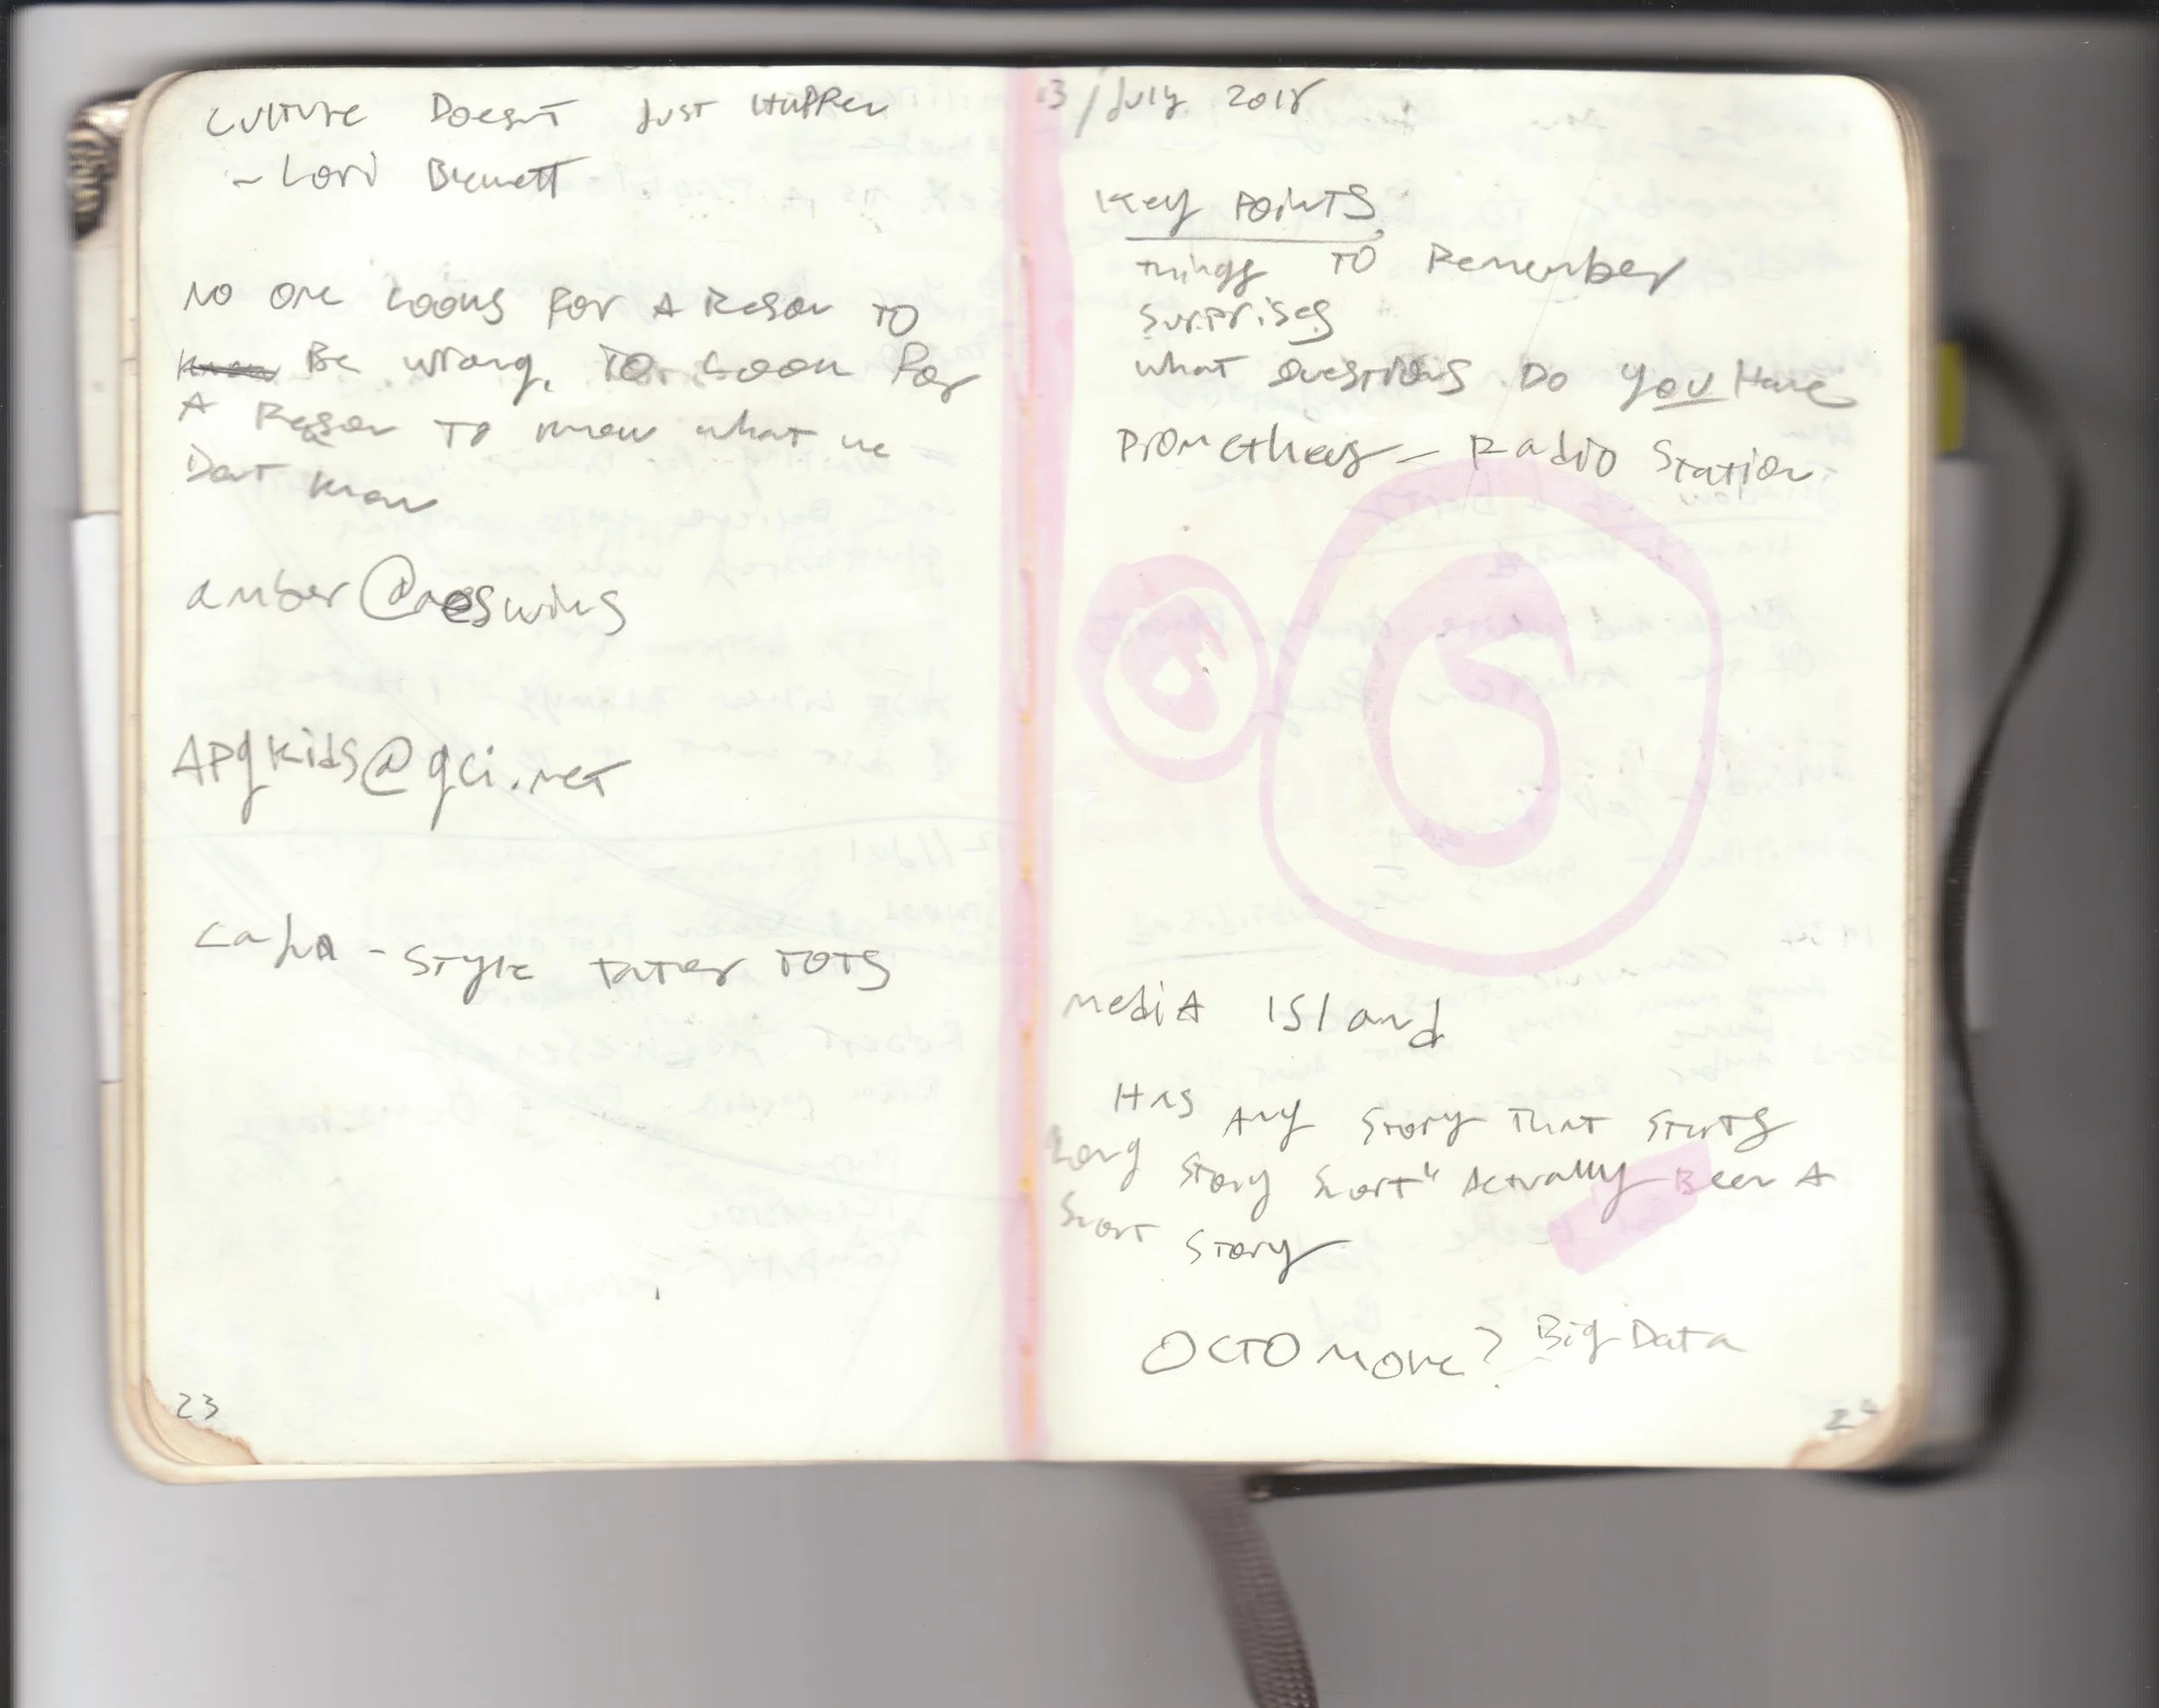 Culture Doesnt Just Happen
- Lori Bennett
No one looks for a Reson to
Be wrong, To Look for
A Reson To know what we
Dont know
amber@
Apgkids@gci.net
- Style tater TOTS
23
13/July 2018
Key Points
things TO Remember
Surprises
what questions Do you Have
Prometheus - Radio Station
Media Island
Has Any Story That Starts
Long Story Short" Actually Been A
Short Story
OCTOmore? Big Data
24